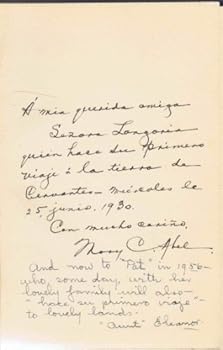 Á mia querida amiga
Señora Longoria
quién hace su primero
viaje á la tierra de
Cervantes – miércoles le
25, junio, 1930.
Con mucho cariño,
Mary C. Abel.
And now to "Pat" in 1956
who, some day, with her
lovely family will also –
"hace su primero viaje"
to lovely lands.
"Aunt" Eleanor.